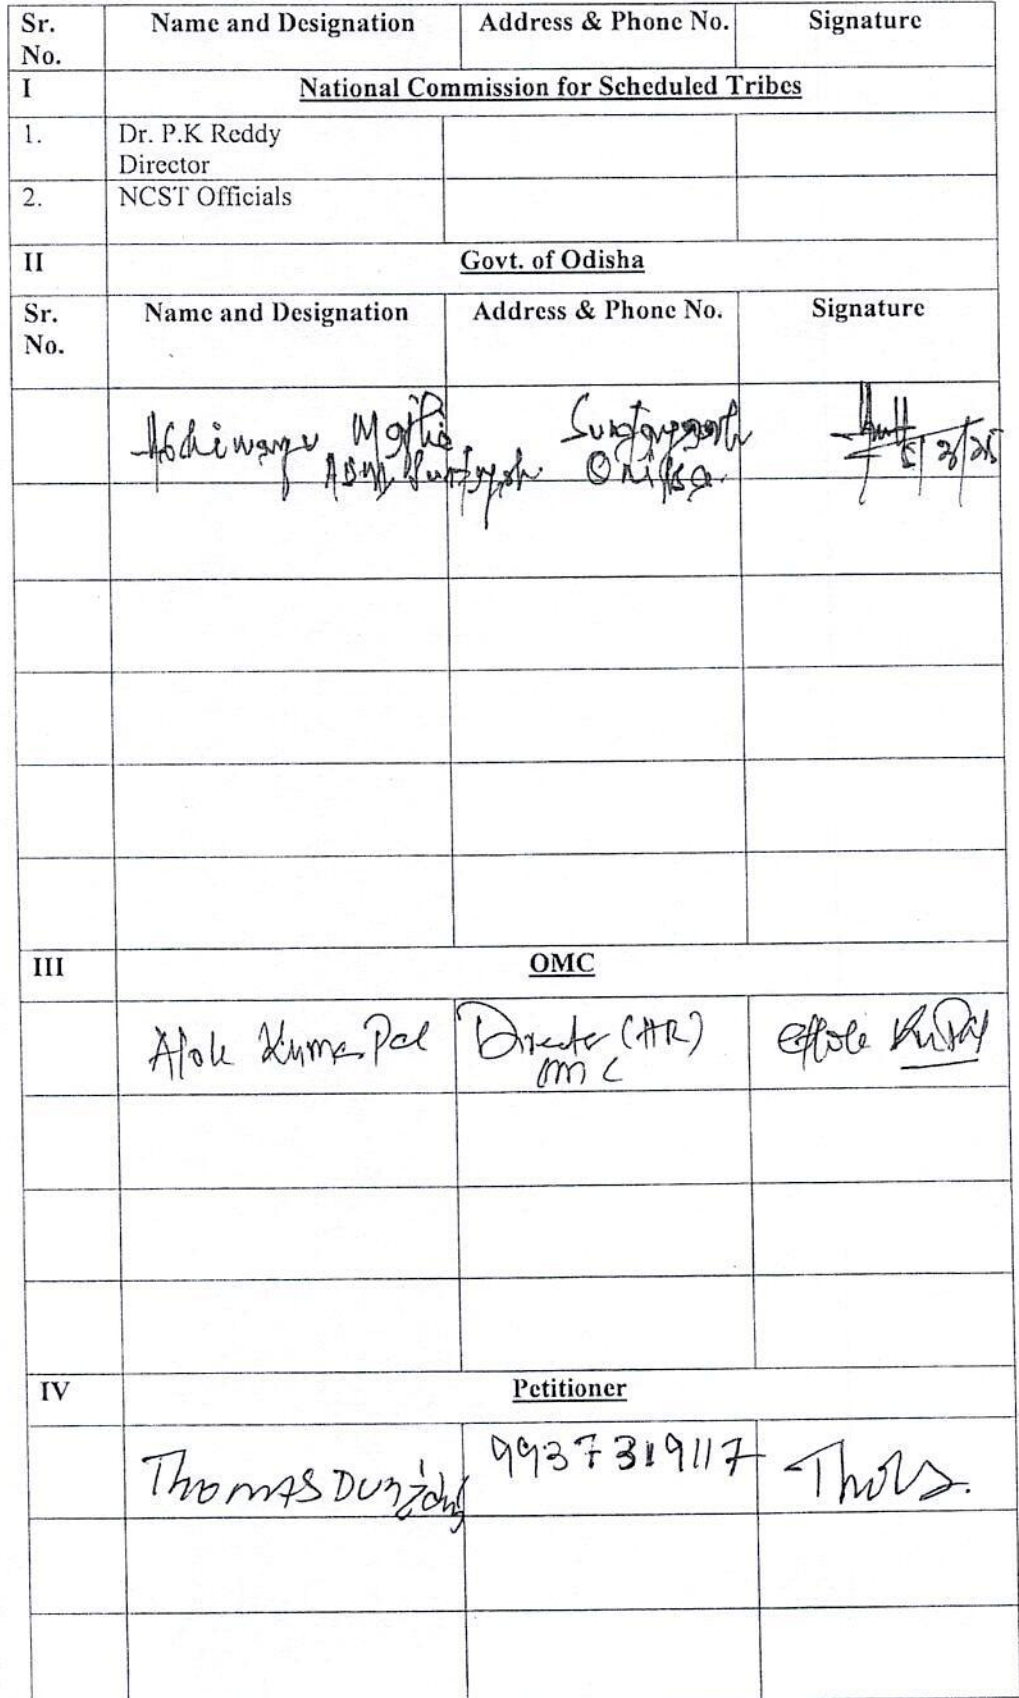 Sr. No. Name and Designation Address & Phone No. Signature
I National Commission for Scheduled Tribes
1. Dr. P.K Reddy
Director
2. NCST Officials
II Govt. of Odisha
Sr. No. Name and Designation Address & Phone No. Signature
Majhi
ADM
Orissa.
III OMC
Alok Kumar Pal Director (HR) OMC Alok Ku Pal
IV Petitioner
Thomas 9937319117